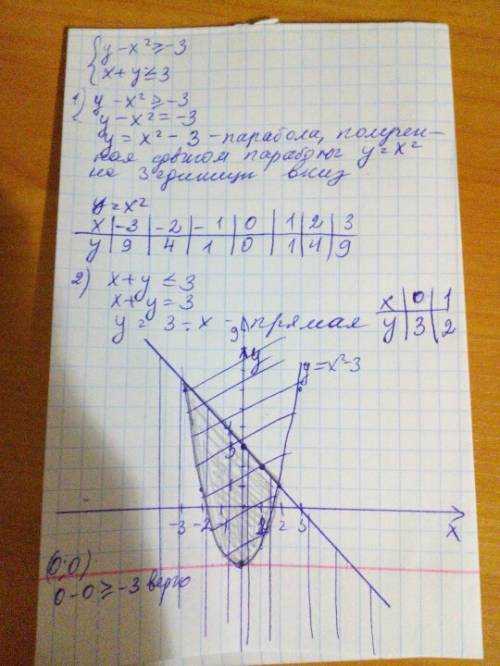 {y-x²≥-3
{x+y≤3
1) y-x²≥-3
y-x²=-3
y=x²-3 - парабола, получен-
ная сдвигом параболы y=x²
на 3 единицы вниз
y=x²
x | -3 | -2 | -1 | 0 | 1 | 2 | 3
y | 9 | 4 | 1 | 0 | 1 | 4 | 9
2) x+y≤3
x+y=3
y=3-x - прямая
x | 0 | 1
y | 3 | 2
y
y=x²-3
3
-3 -2 1 2 3
x
(0;0)
0-0≥-3 верно